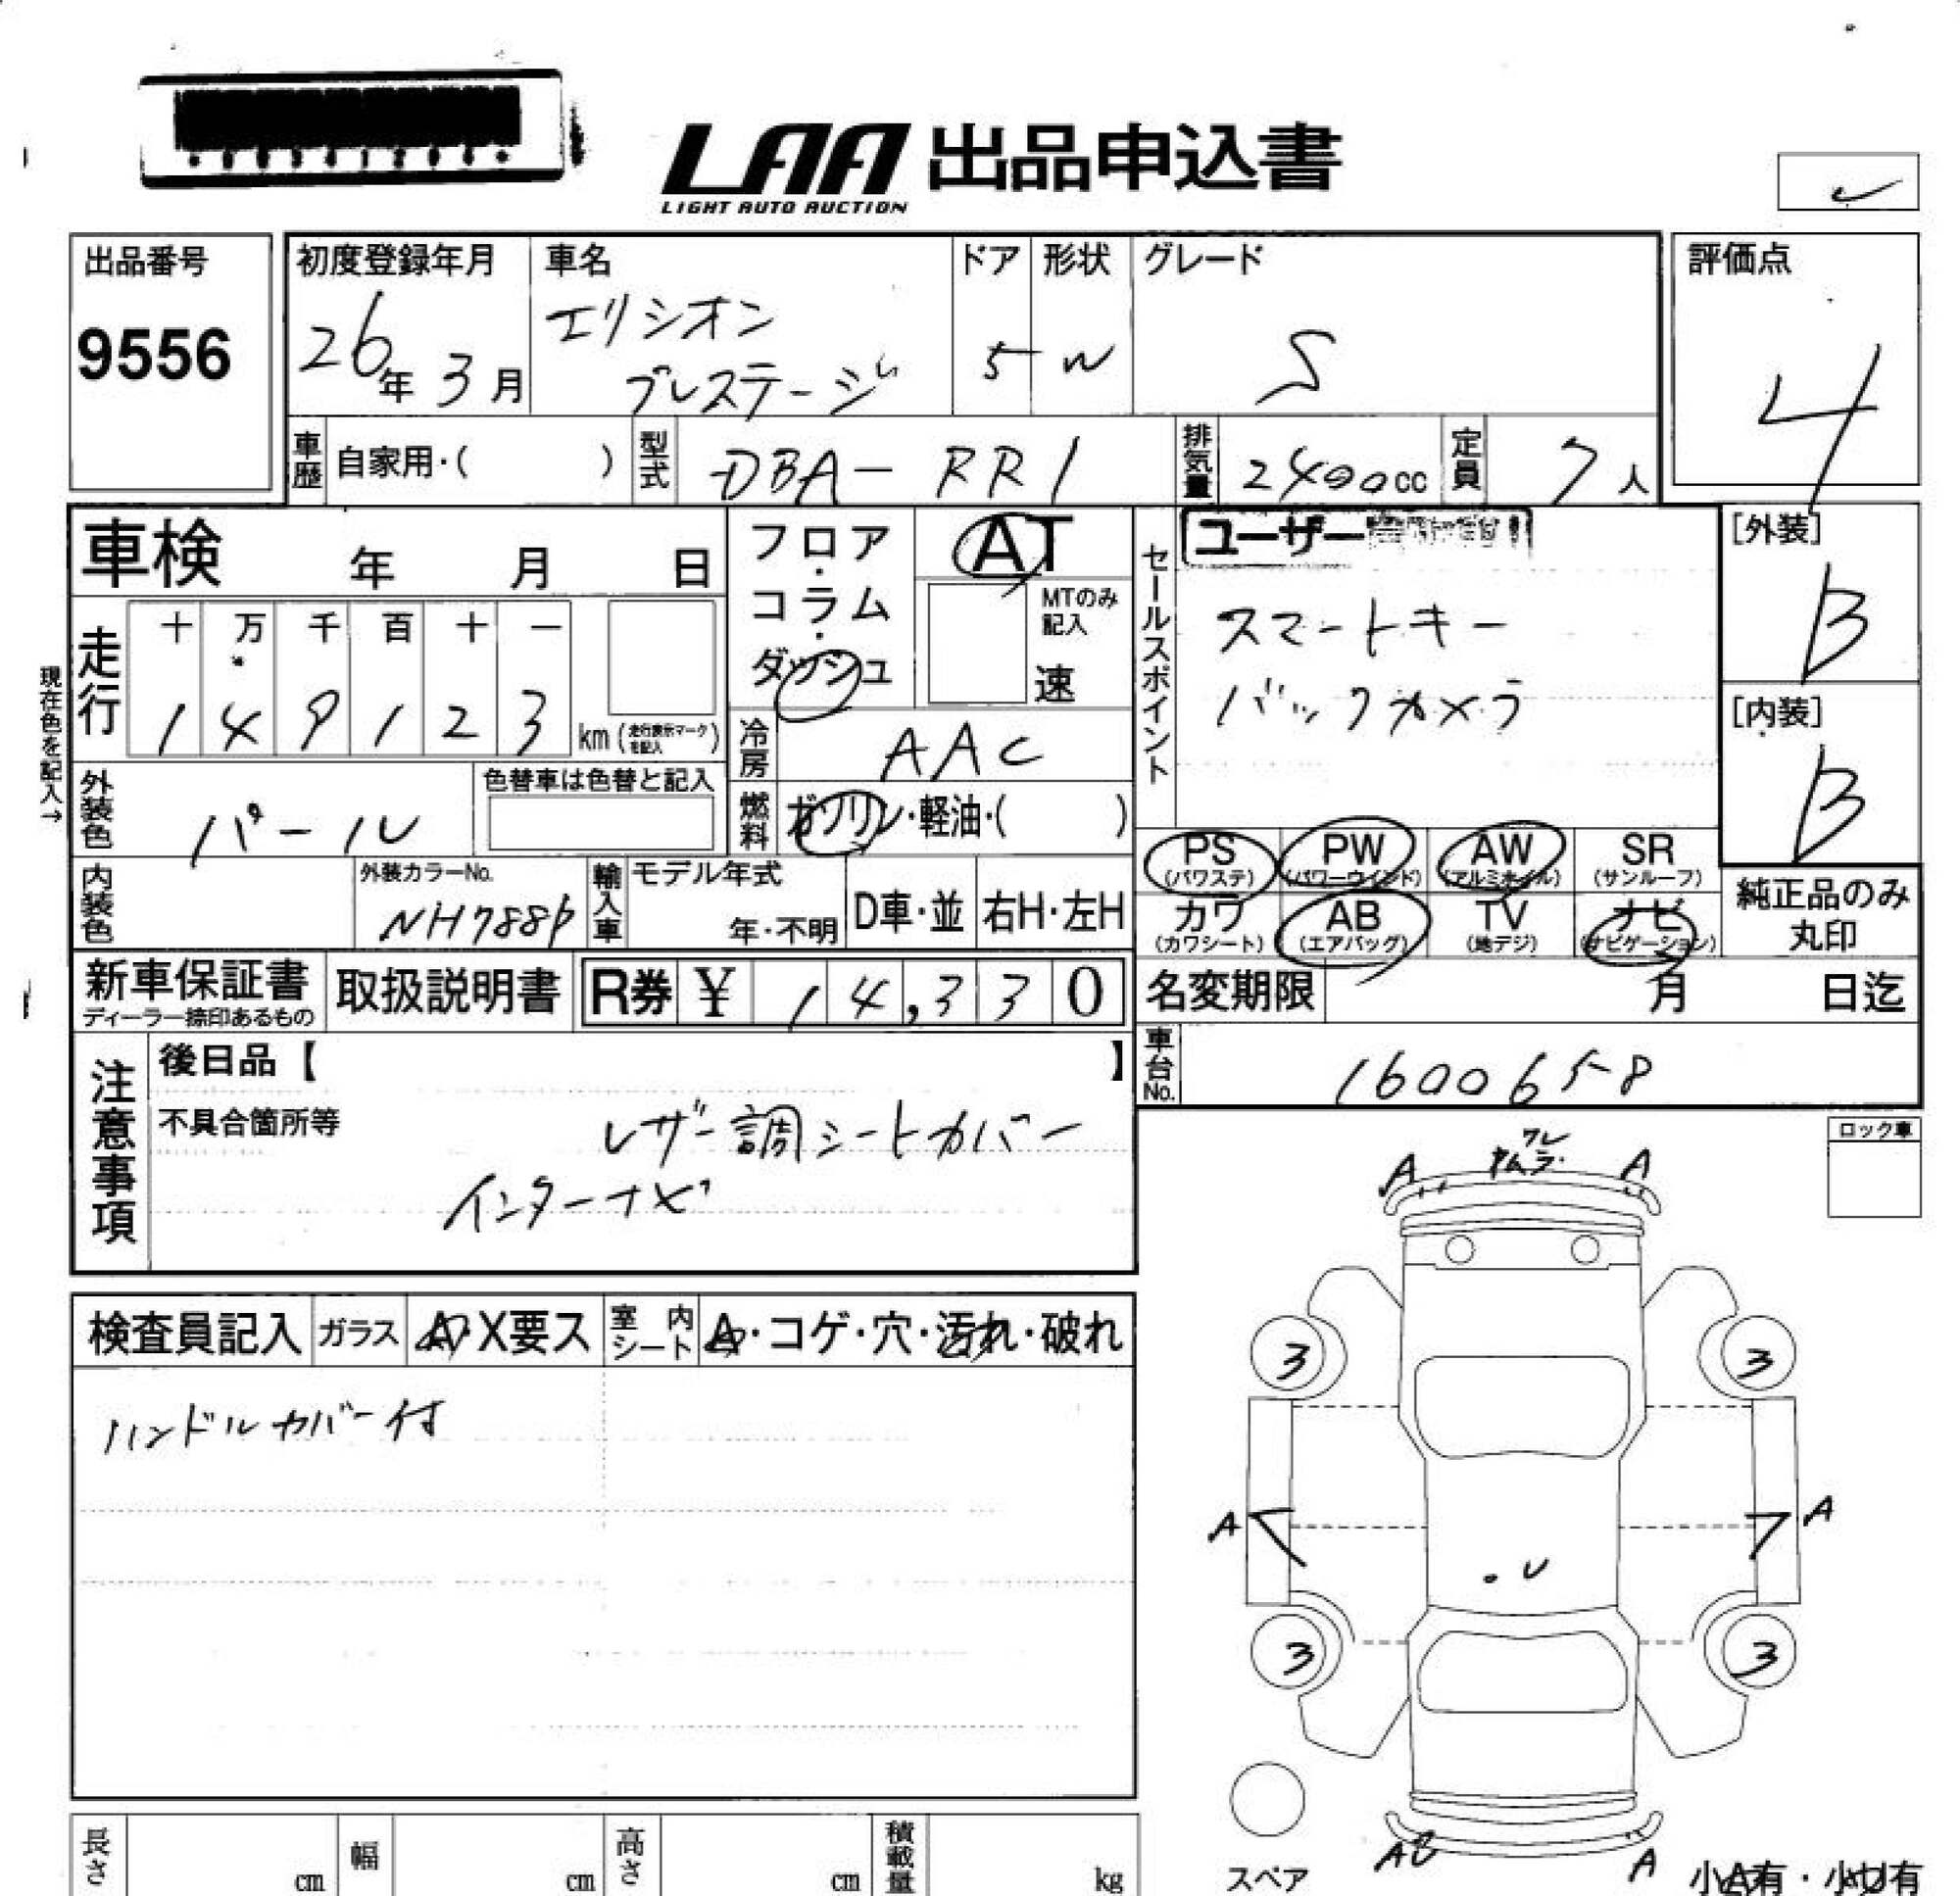 LAA 出品申込書
LIGHT AUTO AUCTION
出品番号
9556
初度登録年月
26年 3月
車名
エリシオン
プレステージ
ドア
5
形状
W
グレード
S
評価点
4
車歴 自家用・( )
型式 DBA-RR1
排気量 2400cc
定員 7人
車検 年 月 日
走行
十 万 千 百 十 一
1 4 9 1 2 3 km (走行表示マークを記入)
現在色を記入→
フロア・コラム・ダッシュ
AT
MTのみ記入
速
冷房 AAC
燃料 ガソリン・軽油・( )
外装色 パール
色替車は色替と記入
内装色
外装カラーNo.
NH788P
輸入車
モデル年式
年・不明
D車・並
右H・左H
セールスポイント
ユーザー
スマートキー
バックカメラ
[外装]
B
[内装]
B
PS (パワステ)
PW (パワーウインド)
AW (アルミホイル)
SR (サンルーフ)
カワ (カワシート)
AB (エアバッグ)
TV (地デジ)
ナビ (ナビゲーション)
純正品のみ
丸印
新車保証書
ディーラー捺印あるもの
取扱説明書
R券 ¥ 14,330
名変期限 月 日迄
車台No. 1600658
注意事項
後日品【 】
不具合箇所等
レザー調シートカバー
インターナビ
ロック車
検査員記入
ガラス A・X要ス
室内シート A・コゲ・穴・汚れ・破れ
ハンドルカバー付
A A
3 3
A A
・U
3 3
A A
スペア
小A有・小U有
長さ cm
幅 cm
高さ cm
積載量 kg